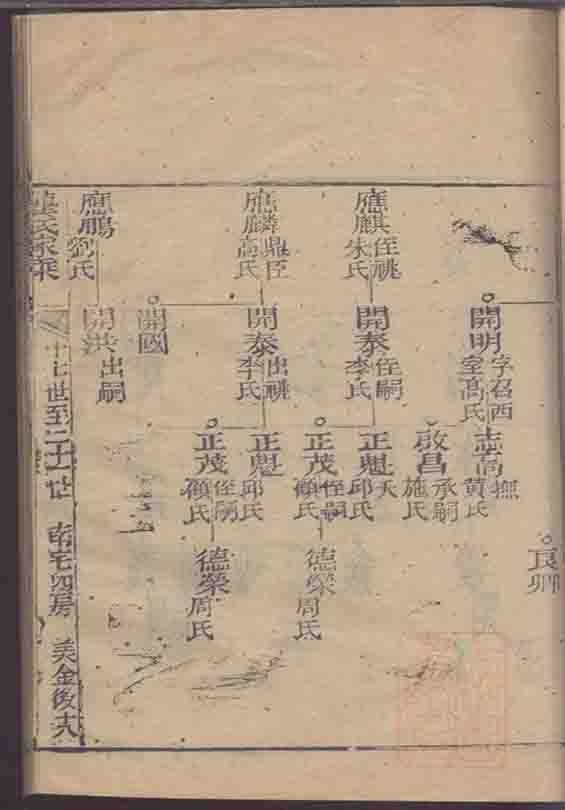 良卿
開明 字召西 室高氏
志高 撫 黃氏
啟昌 承嗣 施氏
應麒 侄祧 朱氏
開泰 侄嗣 李氏
正魁 夭 邱氏
正茂 侄嗣 顧氏
德榮 周氏
應麟 鼎臣 高氏
開泰 出祧 李氏
正魁 邱氏
正茂 侄嗣 顧氏
德榮 周氏
開國
應鵬 劉氏
開洪 出嗣
氏家乘
世至二十一世 南宅四房 美金後